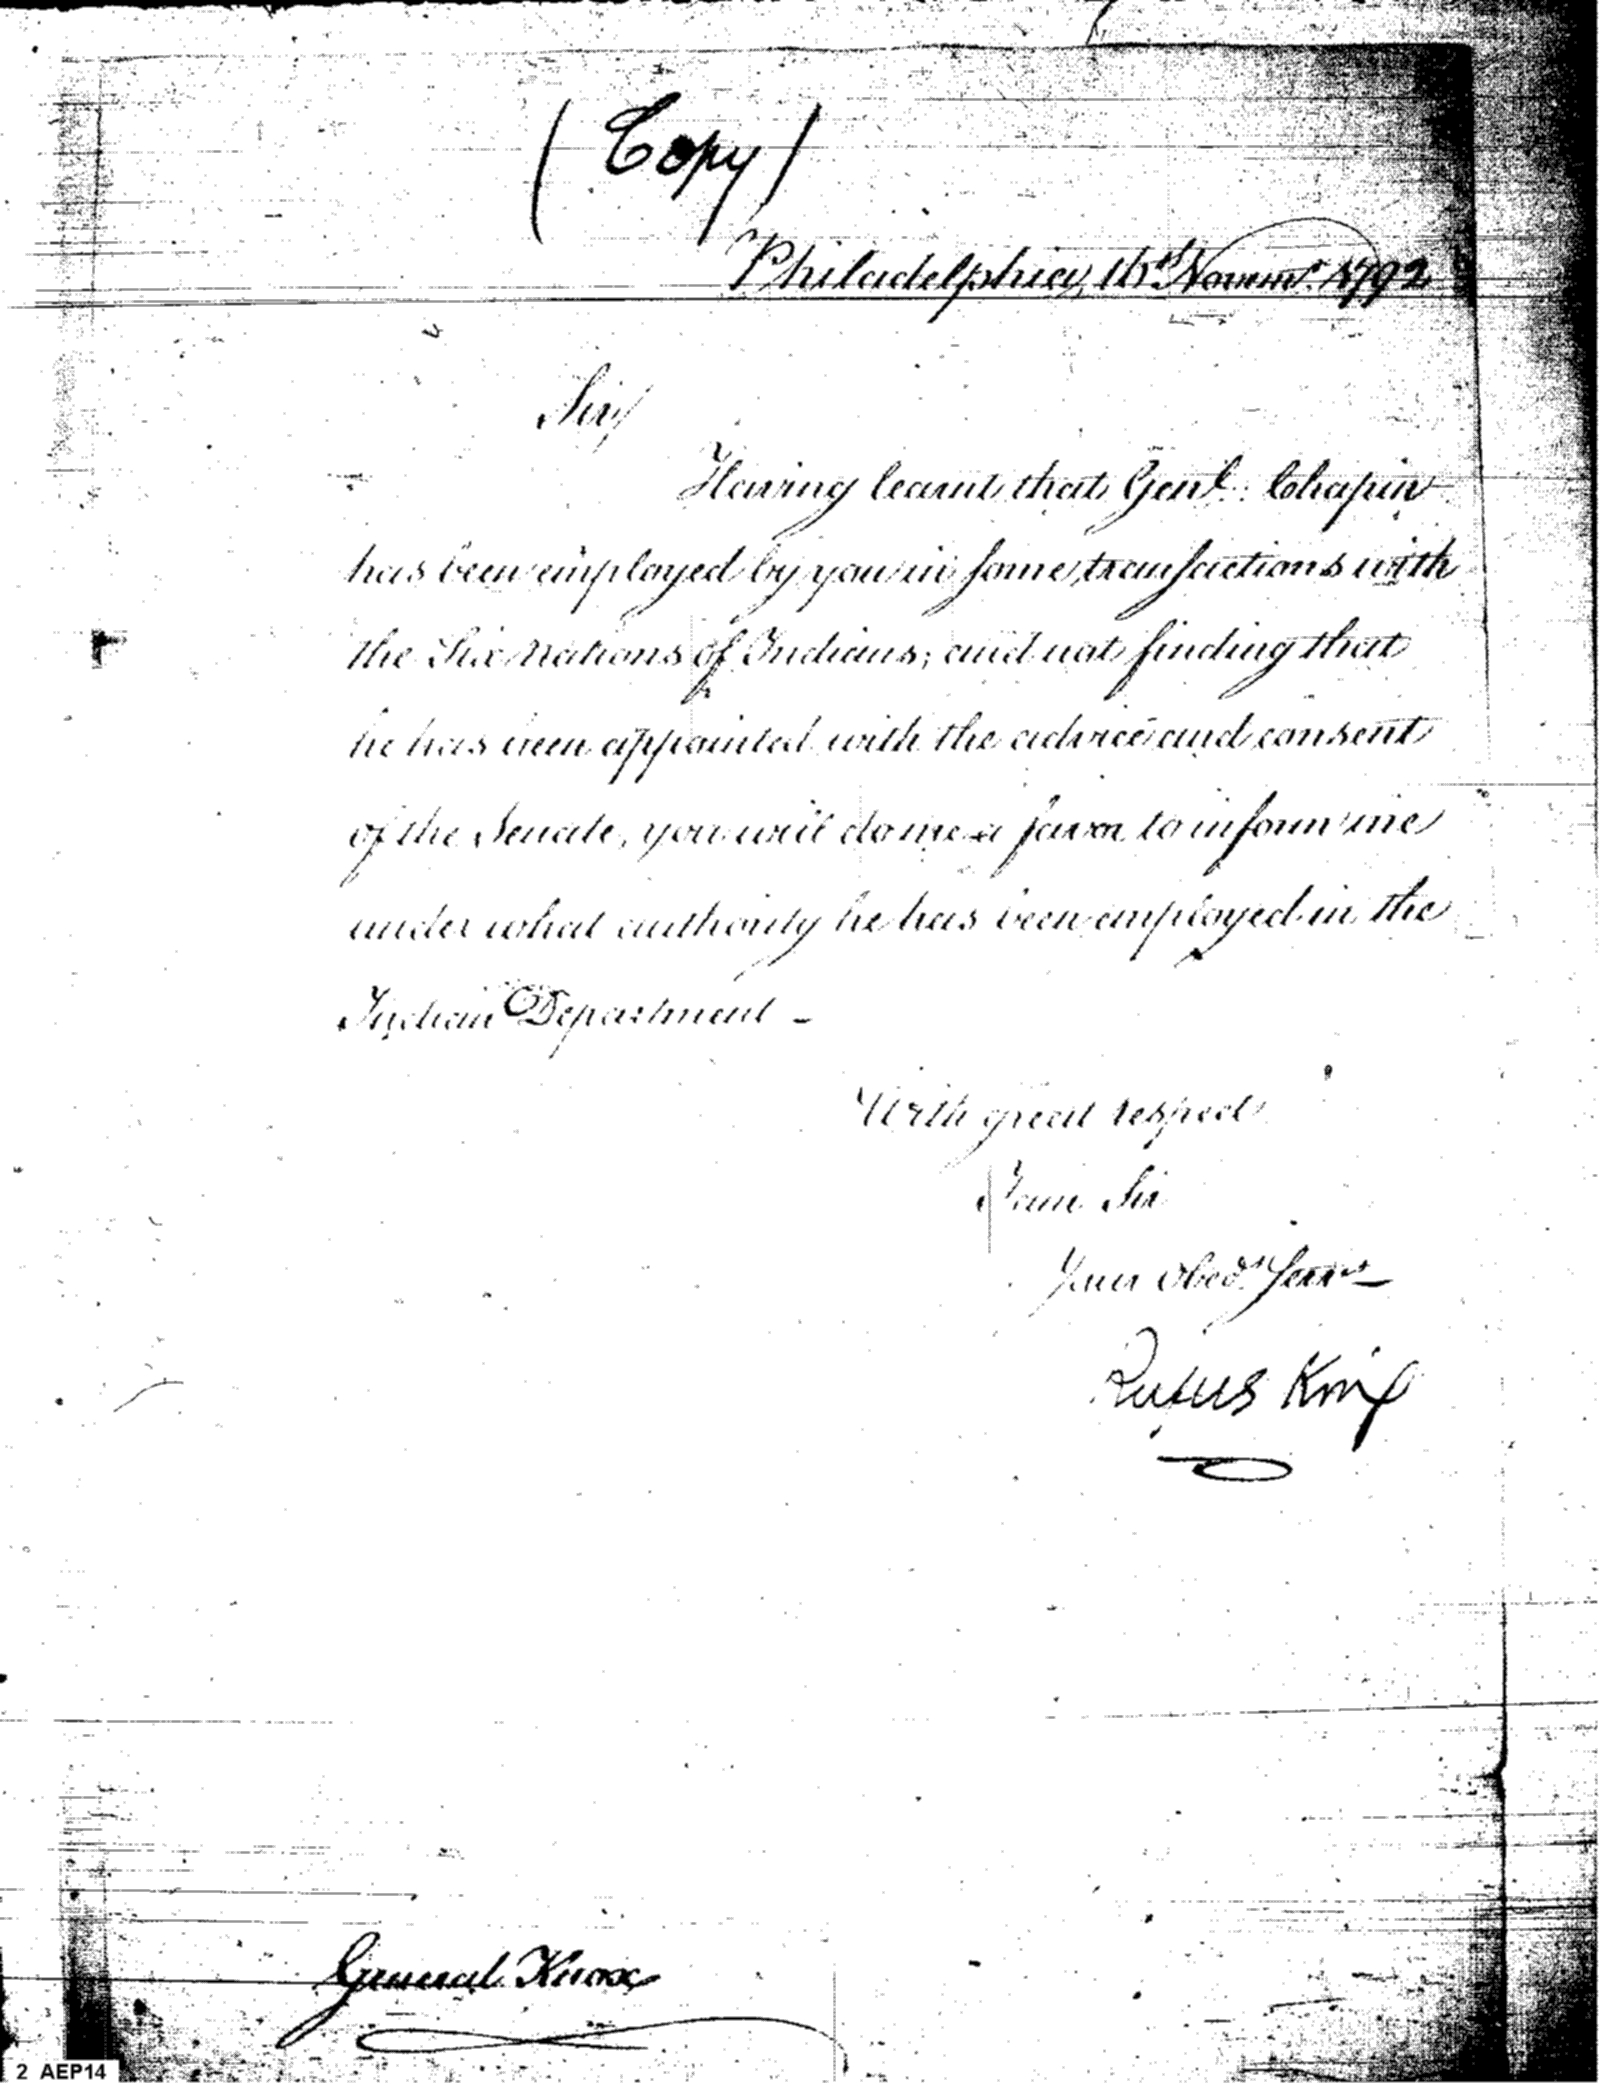 (Copy)
Philadelphia, Novemr. 1792
Sir,
Having learnt that Genl. Chapin
has been employed by you in some transactions with
the Six Nations of Indians; and not finding that
he has been appointed with the advice and consent
of the Senate, you will do me a favor to inform me
under what authority he has been employed in the
Indian Department –
With great respect
I am Sir
Your Obedt. Servt
Rufus King
General Knox
2 AEP14